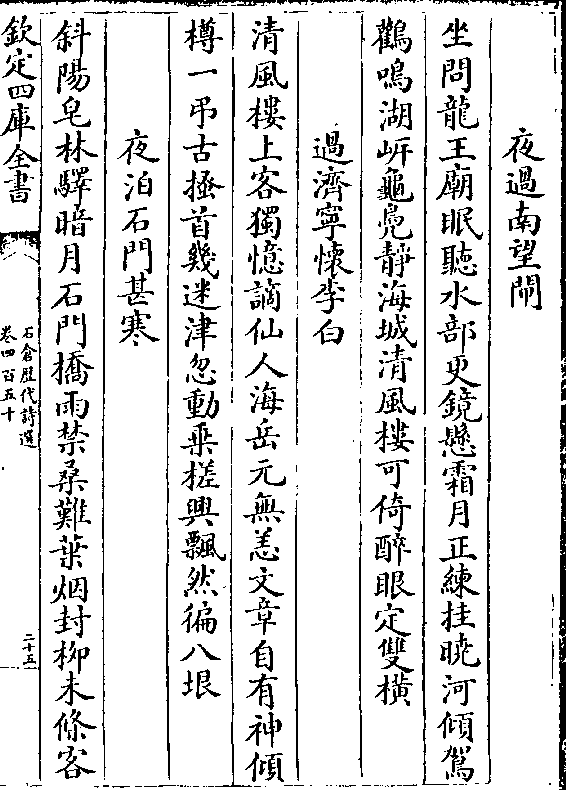 夜過南望閘
坐問龍王廟眠聽水部更鏡懸霜月正練挂曉河傾鴐
鸛鳴湖岍龜鳧靜海城清風樓可倚醉眼定雙橫
過濟寧懷李白
清風樓上客獨憶謫仙人海岳元無恙文章自有神傾
樽一弔古搔首幾迷津忽動乗槎興飄然徧八垠
夜泊石門甚寒
斜陽皂林驛暗月石門橋雨禁桑難葉烟封栁未條客
欽定四庫全書
石倉歴代詩選
卷四百五十
二十五